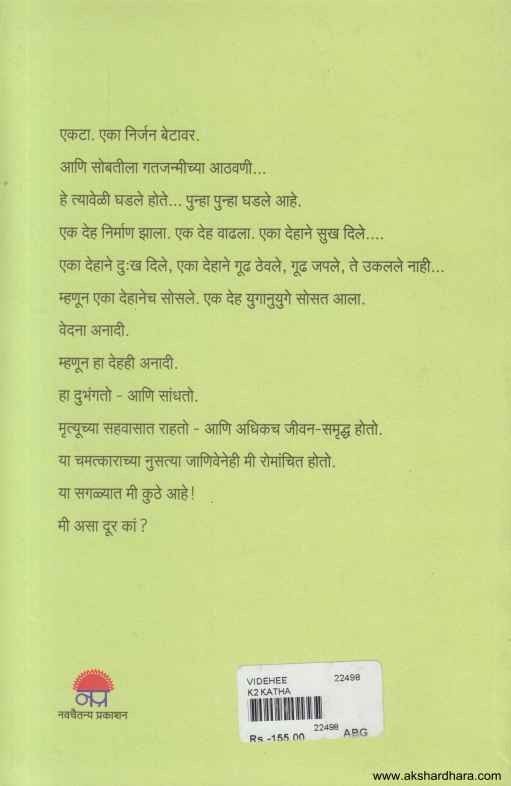 एकटा. एका निर्जन बेटावर.
आणि सोबतीला गतजन्मीच्या आठवणी...
हे त्यावेळी घडले होते... पुन्हा पुन्हा घडले आहे.
एक देह निर्माण झाला. एक देह वाढला. एका देहाने सुख दिले....
एका देहाने दुःख दिले, एका देहाने गूढ ठेवले, गूढ जपले, ते उकलले नाही...
म्हणून एका देहानेच सोसले. एक देह युगानुयुगे सोसत आला.
वेदना अनादी.
म्हणून हा देहही अनादी.
हा दुभंगतो - आणि सांधतो.
मृत्यूच्या सहवासात राहतो - आणि अधिकच जीवन-समृद्ध होतो.
या चमत्काराच्या नुसत्या जाणिवेनेही मी रोमांचित होतो.
या सगळ्यात मी कुठे आहे!
मी असा दूर कां?
नप्र
नवचैतन्य प्रकाशन
VIDEHEE 22498
K2 KATHA
22498
Rs.-155.00 ABG
www.akshardhara.com